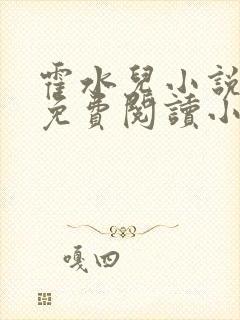 霍水兒小說
免費閱讀小
嘎四